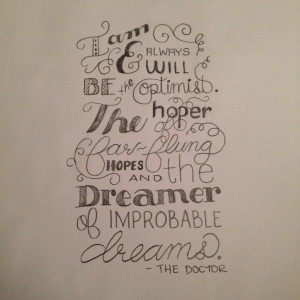 I am
& ALWAYS
WILL
BE the OPTIMIST.
The hoper
of
far-flung
HOPES
AND the
Dreamer
of IMPROBABLE
dreams.
- THE DOCTOR